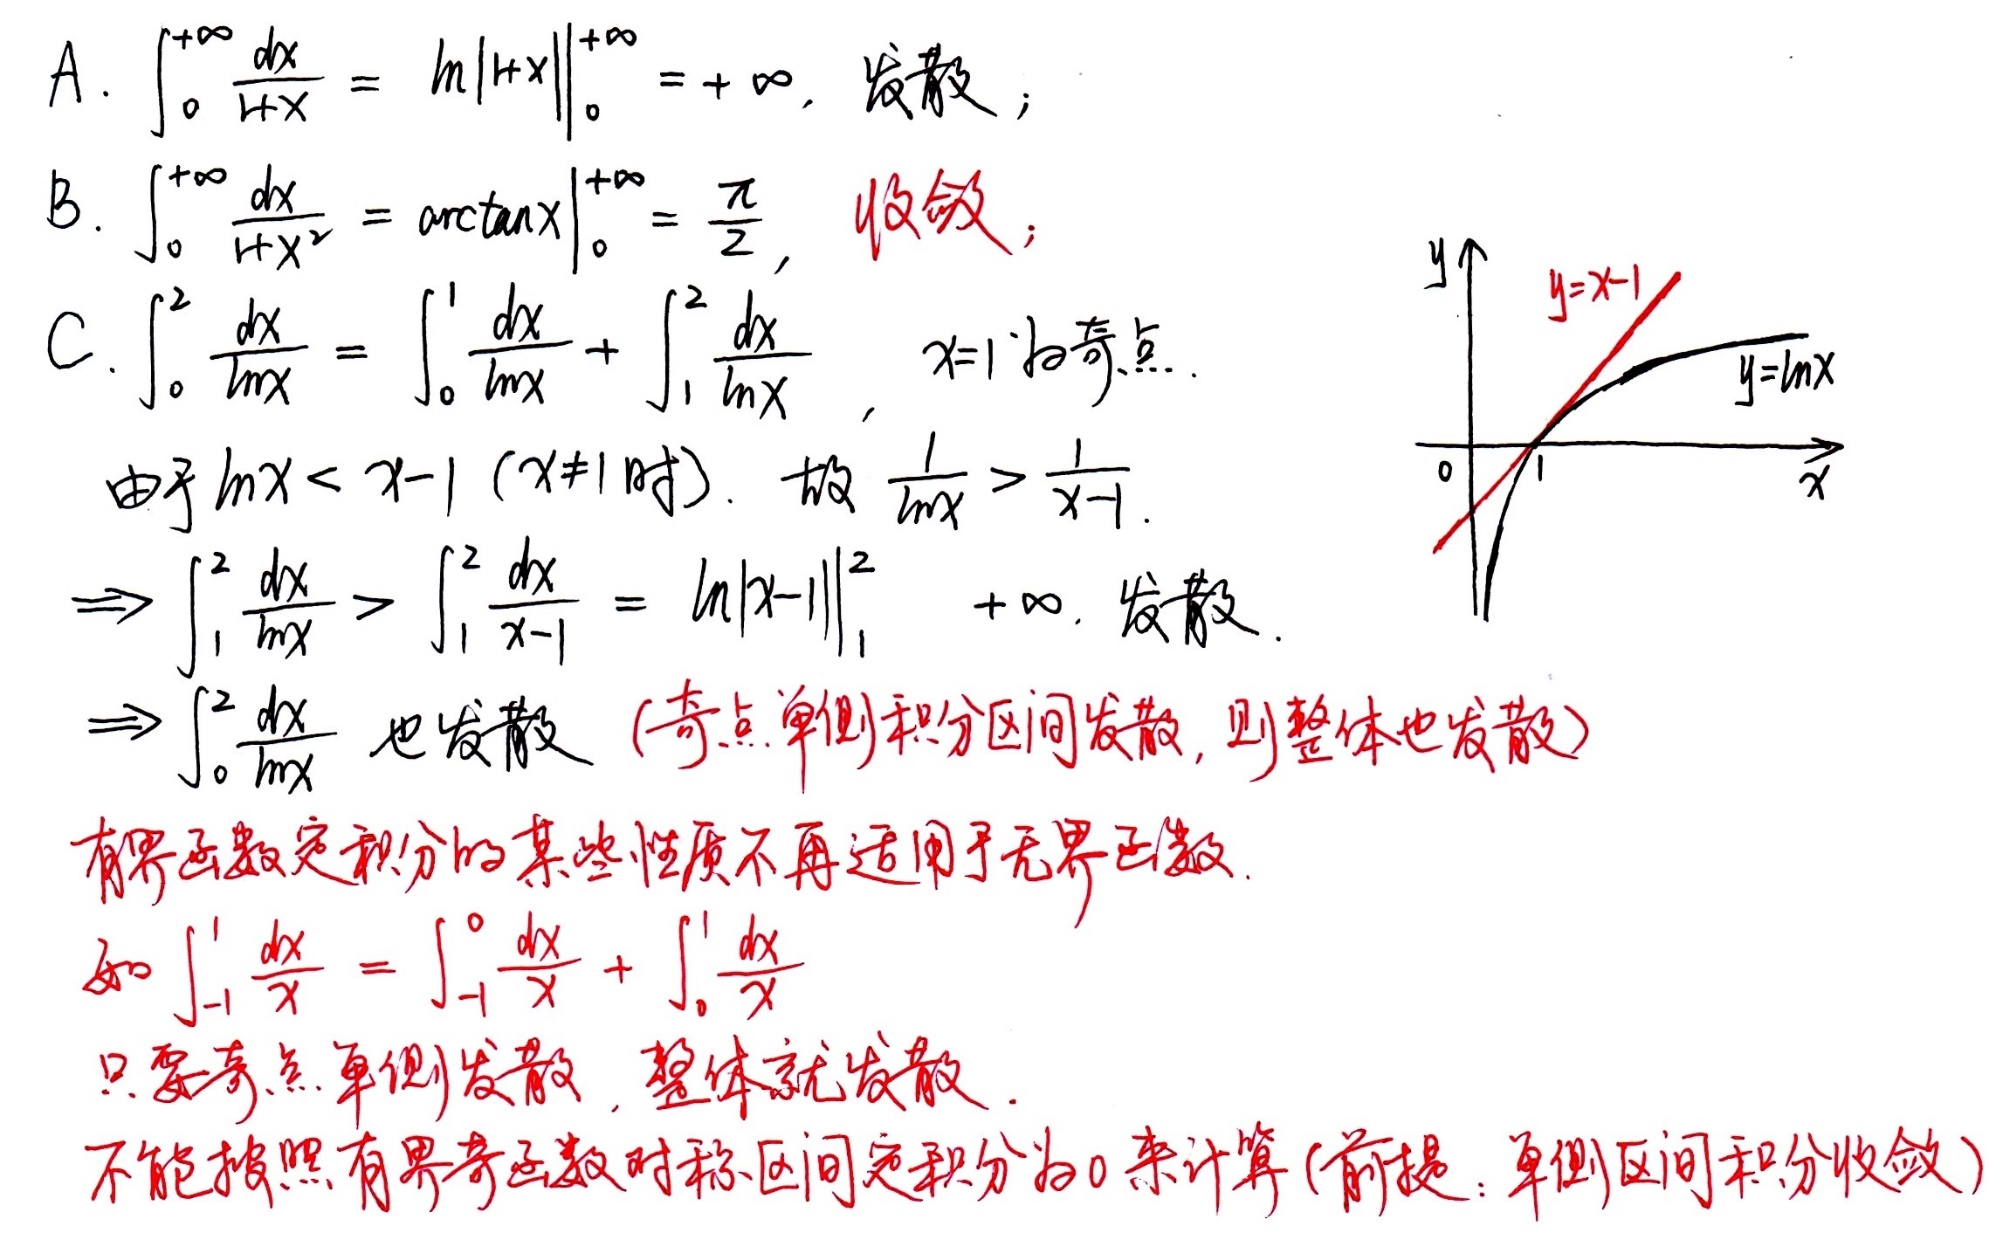 A. ∫₀^{+∞} dx/(1+x) = ln|1+x| |₀^{+∞} = +∞, 发散;
B. ∫₀^{+∞} dx/(1+x²) = arctanx |₀^{+∞} = π/2, 收敛;
C. ∫₀² dx/lnx = ∫₀¹ dx/lnx + ∫₁² dx/lnx, x=1为奇点.
由于 lnx < x-1 (x≠1时). 故 1/lnx > 1/(x-1).
⇒ ∫₁² dx/lnx > ∫₁² dx/(x-1) = ln|x-1| |₁² +∞. 发散.
⇒ ∫₀² dx/lnx 也发散 (奇点单侧积分区间发散, 则整体也发散)
有界函数定积分的某些性质不再适用于无界函数.
如 ∫₋₁¹ dx/x = ∫₋₁⁰ dx/x + ∫₀¹ dx/x
只要奇点单侧发散, 整体就发散.
不能按照有界奇函数对称区间定积分为0来计算(前提: 单侧区间积分收敛)
y
y=x-1
y=lnx
0 1 x